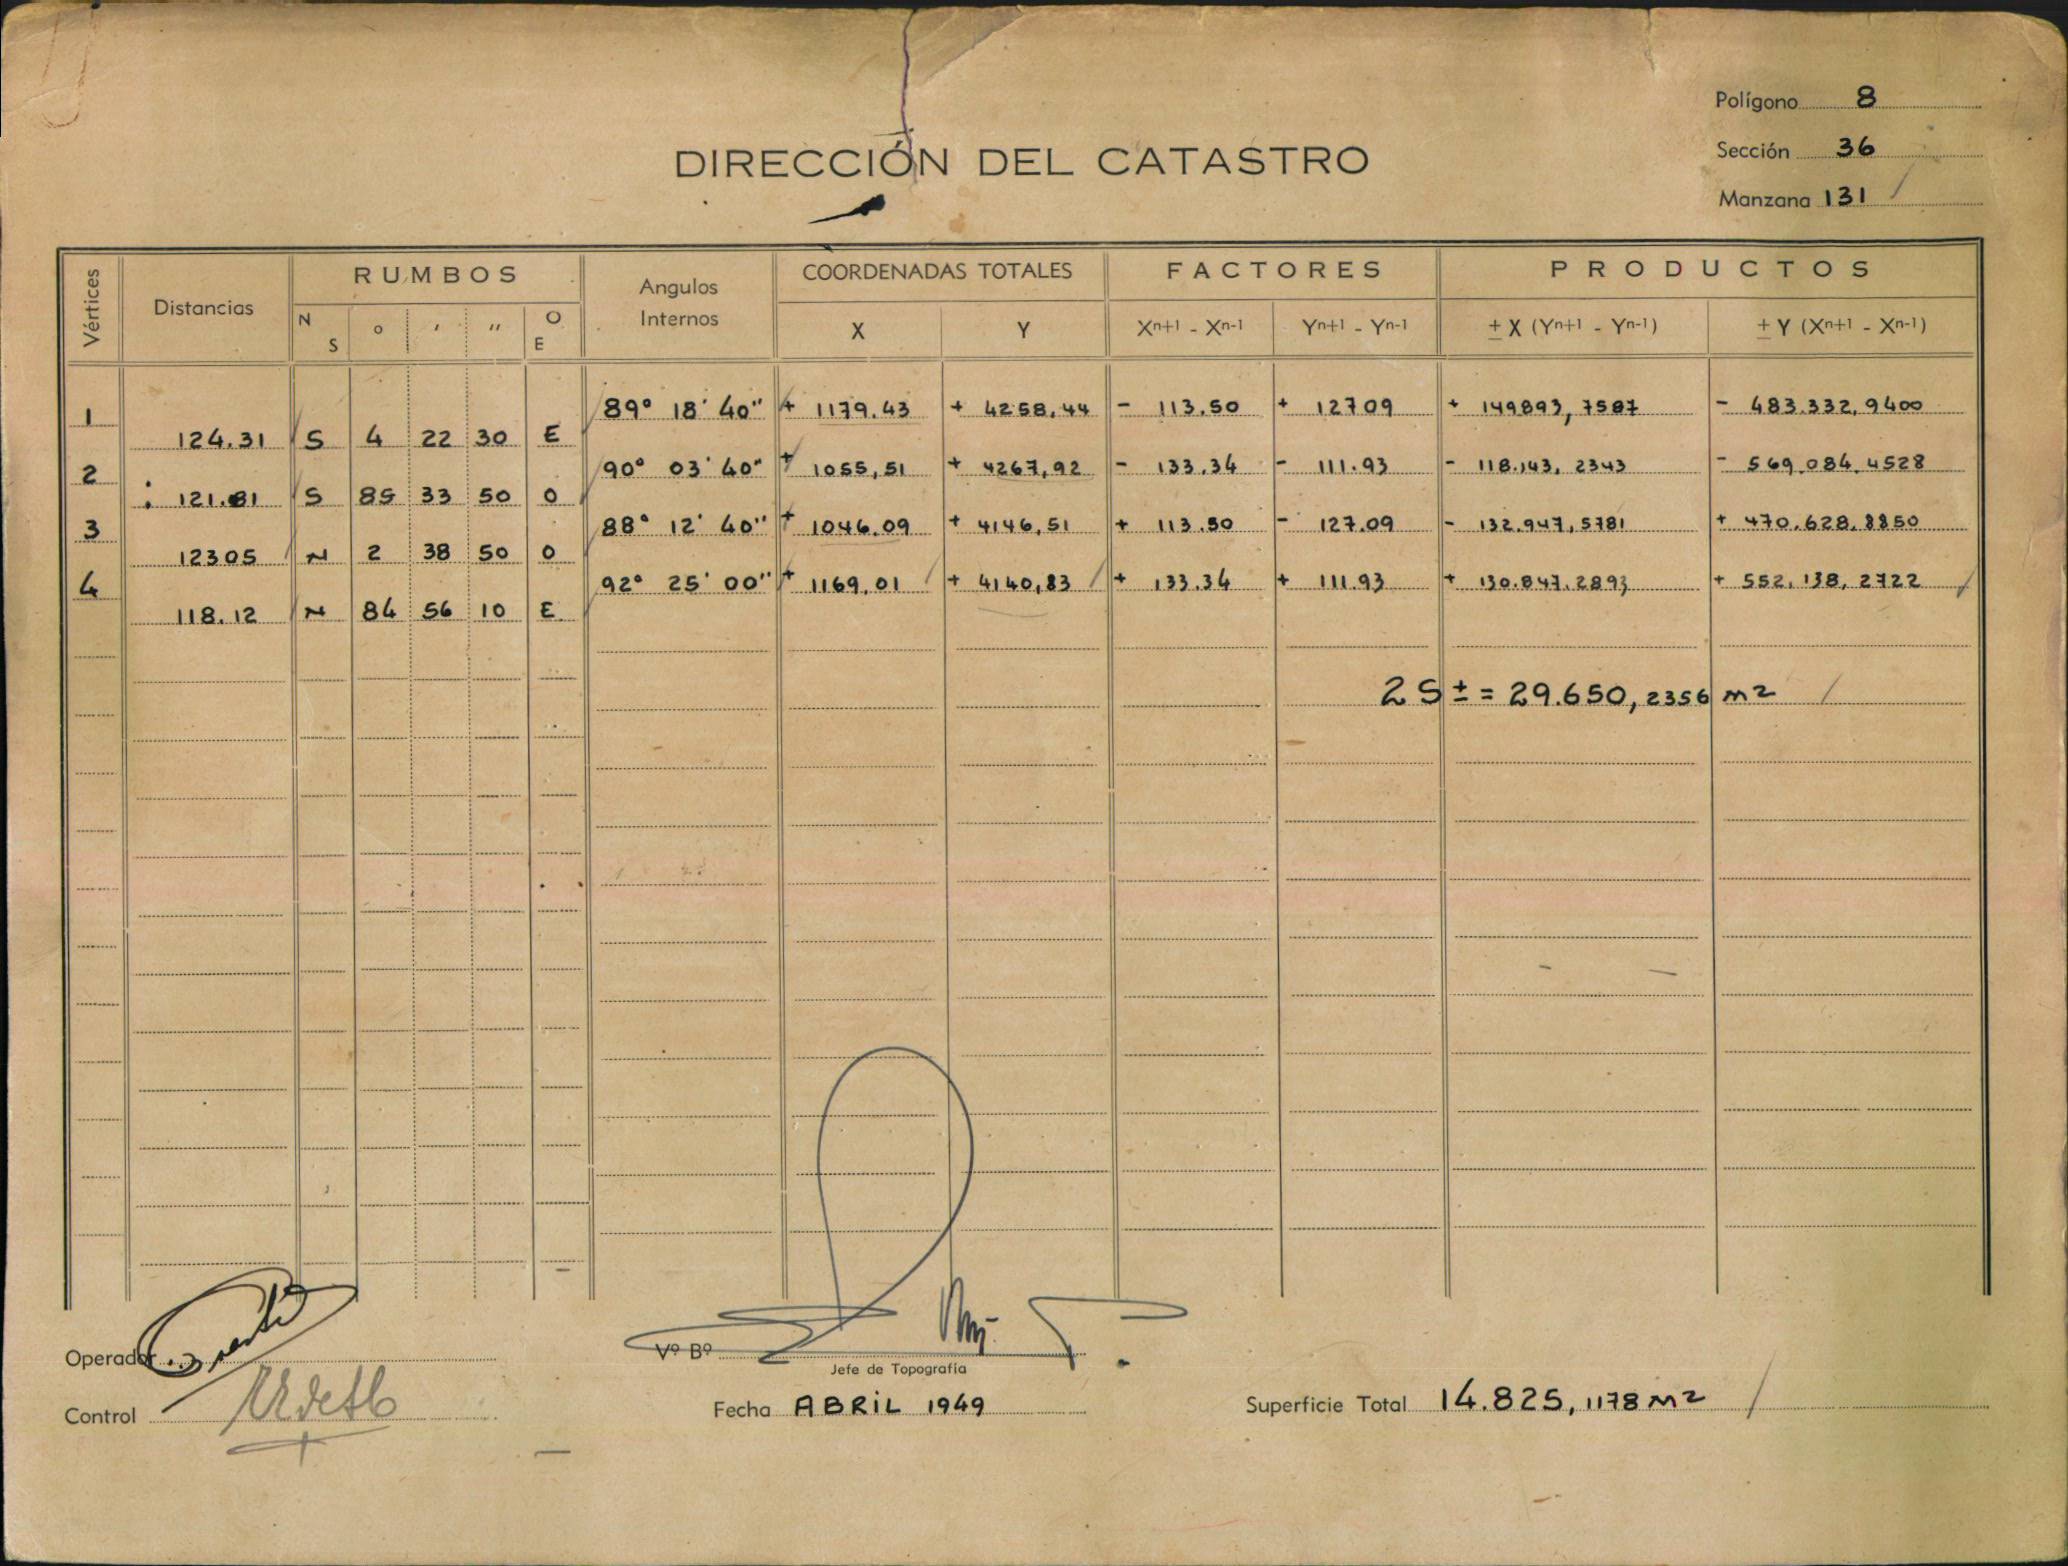 Polígono 8
DIRECCIÓN DEL CATASTRO
Sección 36
Manzana 131
Vértices Distancias RUMBOS N S ° ′ ″ O E Angulos Internos COORDENADAS TOTALES X Y FACTORES Xn+1 - Xn-1 Yn+1 - Yn-1 PRODUCTOS ± X (Yn+1 - Yn-1) ± Y (Xn+1 - Xn-1)
1 89° 18' 40" + 1179.43 + 4258,44 - 113.50 + 127.09 + 149893,7587 - 483.332,9400
124.31 S 4 22 30 E
2 90° 03' 40" + 1055,51 + 4267,92 - 133.34 - 111.93 - 118.143,2343 - 569.084.4528
121.81 S 85 33 50 O
3 88° 12' 40" + 1046.09 + 4146,51 + 113.50 - 127.09 - 132.947,5781 + 470.628.8850
12305 N 2 38 50 O
4 92° 25' 00" + 1169,01 + 4140,83 + 133.34 + 111.93 + 130.847.2893 + 552.138,2722
118.12 N 84 56 10 E
2 S ± = 29.650,2356 m2
Operador
Vº Bº
Jefe de Topografía
Control
Fecha ABRIL 1949
Superficie Total 14.825,1178 M2